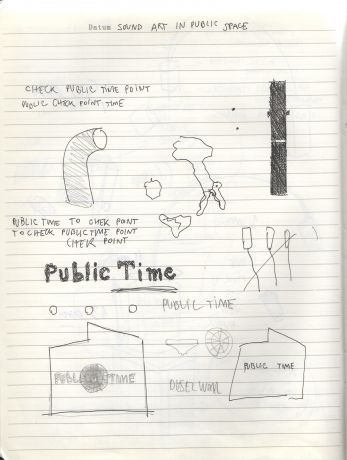 Datum SOUND ART IN PUBLIC SPACE
CHECK PUBLIC TIME POINT
PUBLIC CHECK POINT TIME
PUBLIC TIME TO CHEK POINT
TO CHECK PUBLIC TIME POINT
CHEK POINT
Public Time
PUBLIC TIME
PUBLIC TIME
PUBLIC TIME